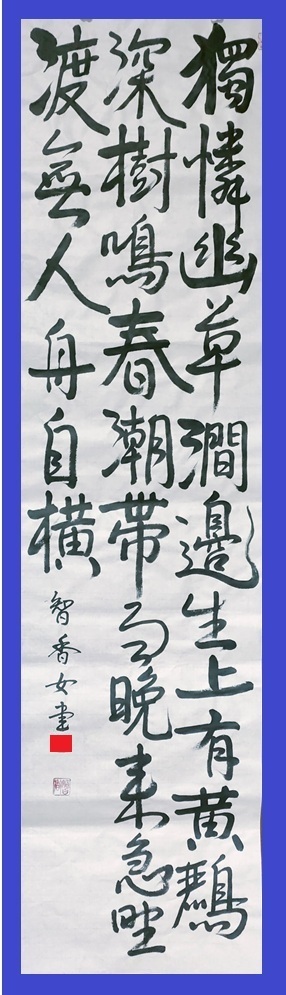 獨憐幽草澗邊生上有黄鸝
深樹鳴春潮帶雨晚來急野
渡無人舟自横
智香女書